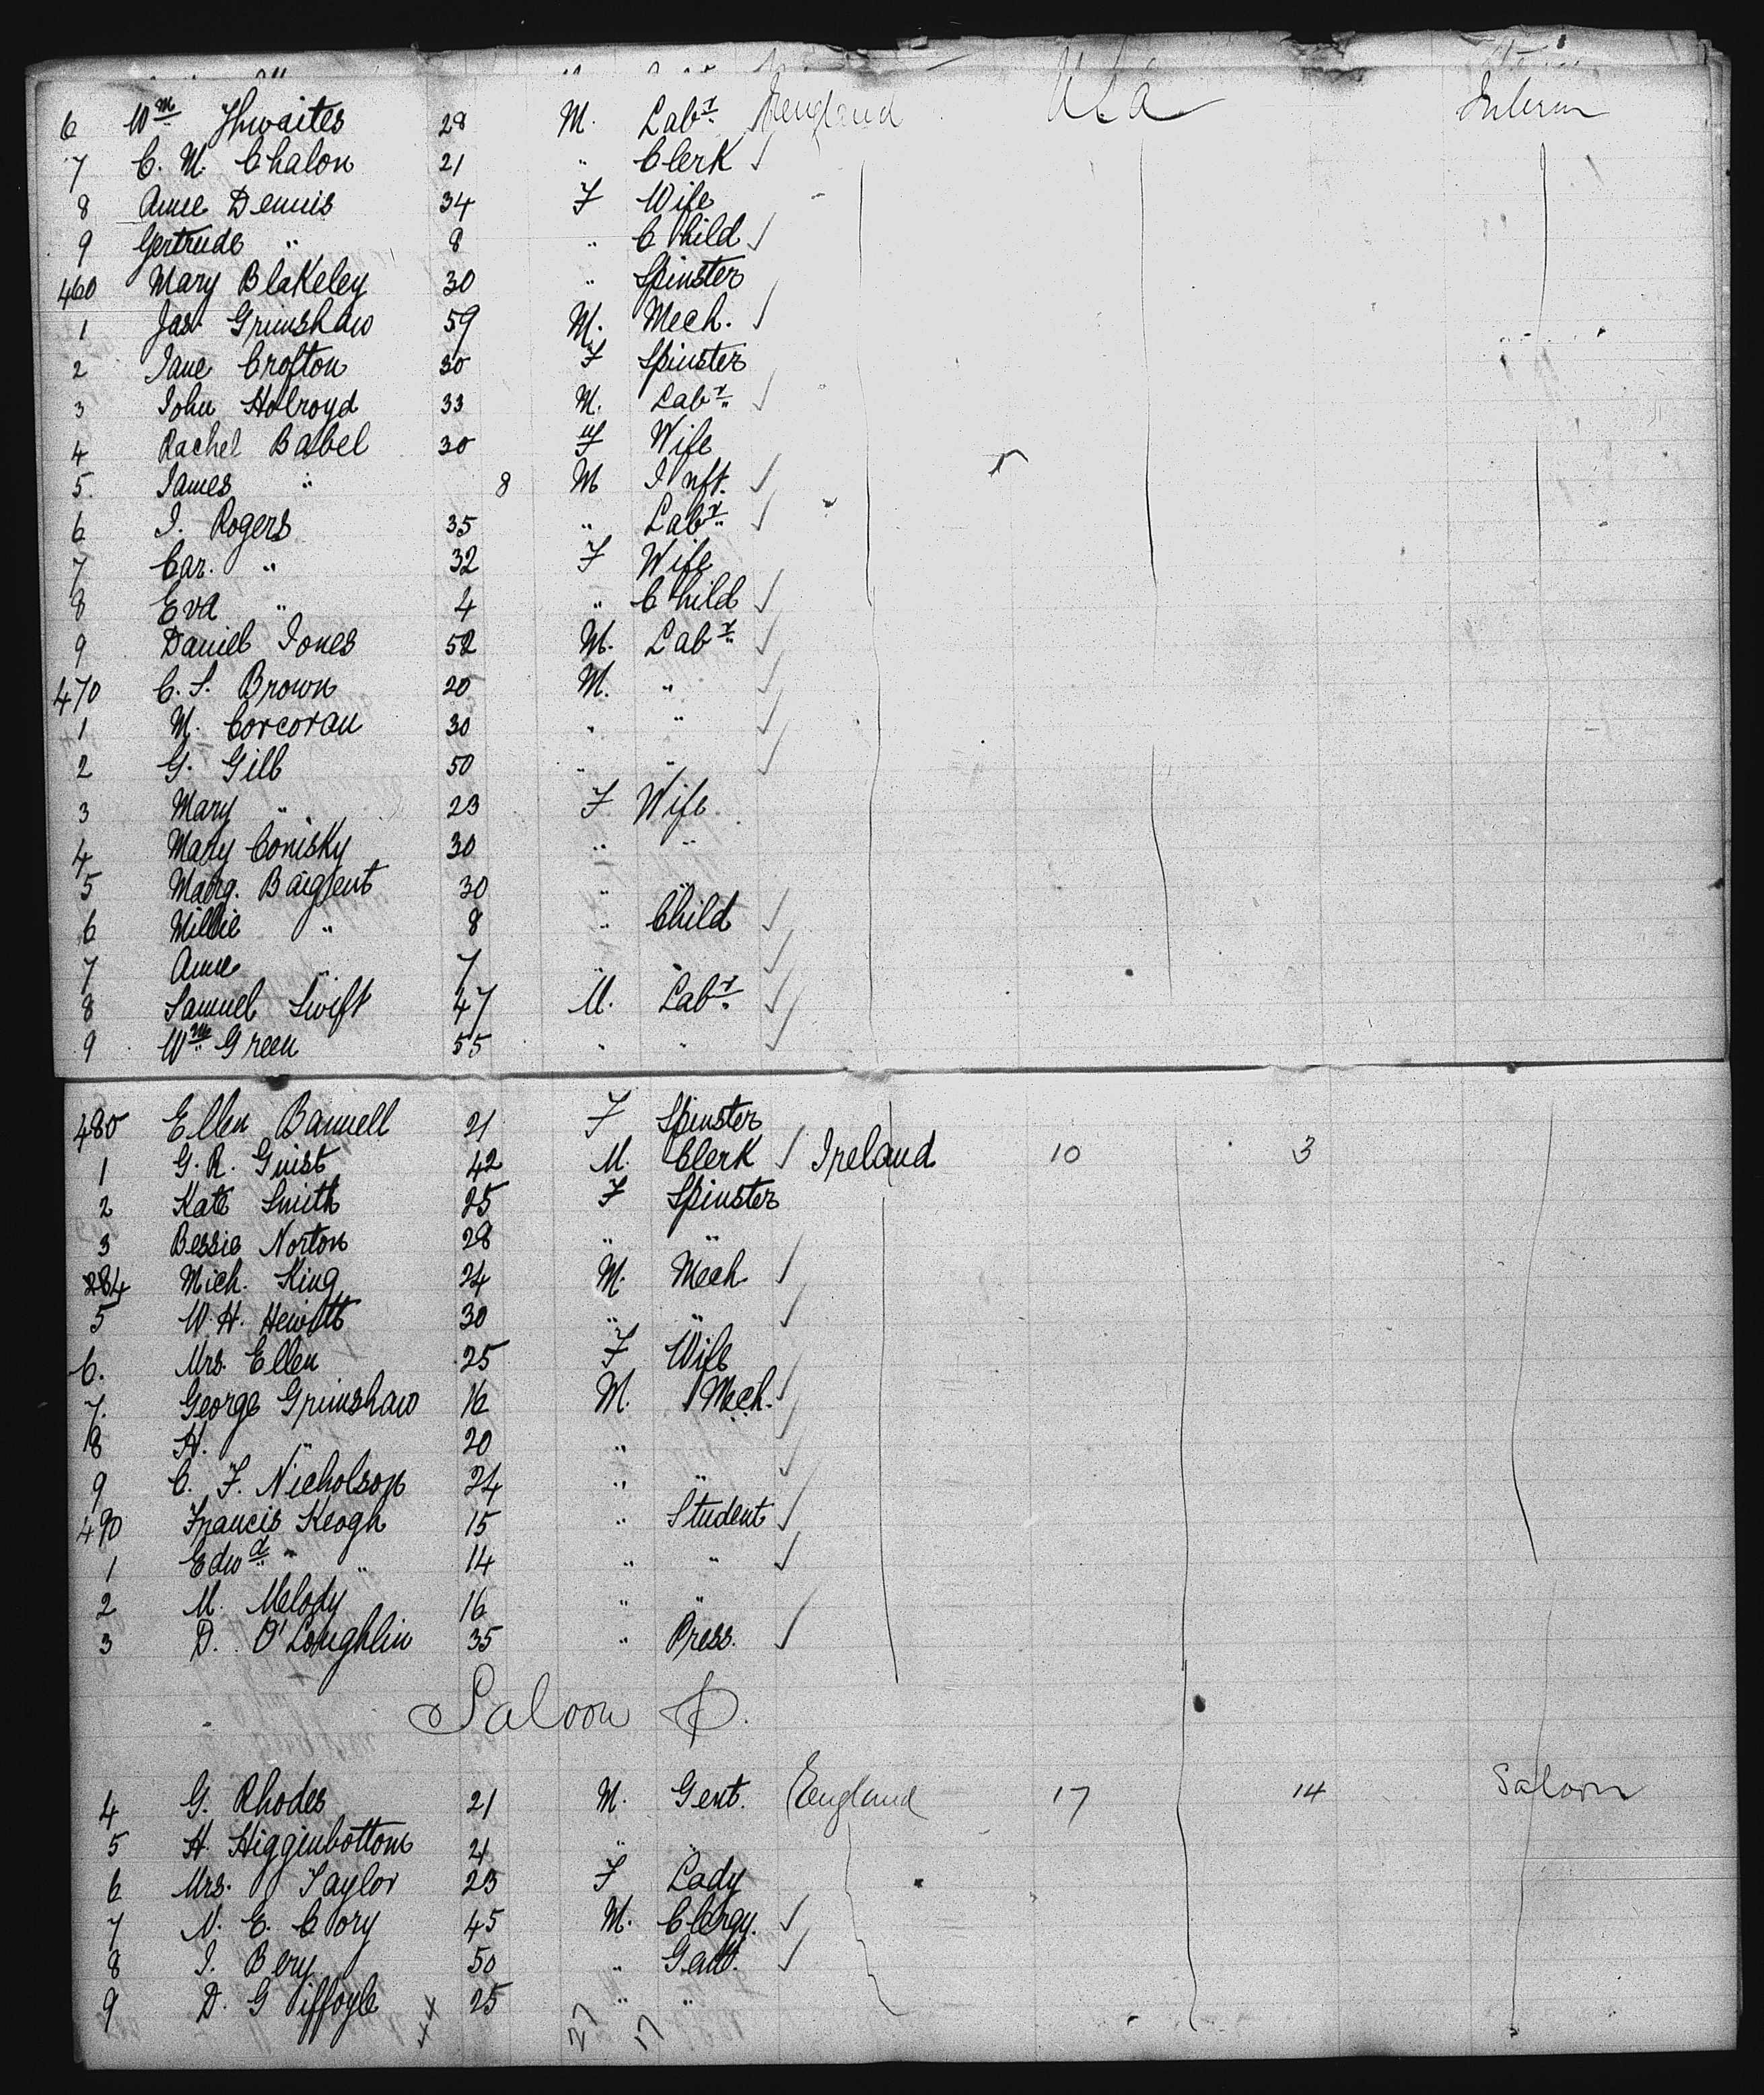 6 Wm Thwaites 28 M. Labr England U S A Interm
7 C. M. Chalon 21 " Clerk ✓
8 Anne Dennis 34 F Wife
9 Gertrude " 8 " Child ✓
460 Mary Blakeley 30 " Spinster
1 Jas. Grimshaw 59 M. Mech. ✓
2 Jane Crofton 30 F Spinster
3 John Holroyd 33 M. Labr ✓
4 Rachel Babel 30 F Wife
5. James " 8 M Inft. ✓
6 J. Rogers 35 " Labr ✓
7 Car. " 32 F Wife
8 Eva " 4 " Child ✓
9 Daniel Jones 52 M. Labr ✓
470 C. S. Brown 20 M. " ✓
1 M. Corcoran 30 " " ✓
2 G. Gill 50 " " ✓
3 Mary " 23 F Wife
4 Mary Conisky 30 " "
5 Marg. Baigent 30 " "
6 Millie " 8 " Child ✓
7 Anne " 7 " " ✓
8 Samuel Swift 47 M. Labr ✓
9 Wm Green 55 " " ✓
480 Ellen Bannell 21 F Spinster
1 G. R. Guist 42 M. Clerk ✓ Ireland 10 3
2 Kate Smith 25 F Spinster
3 Bessie Norton 28 " "
284 Mich. King 24 M. Mech ✓
5 W. H. Hewitt 30 " " ✓
6. Mrs. Ellen 25 F Wife
7. George Grimshaw 16 M. Mech. ✓
8 H. " 20 " ✓
9 C. F. Nicholson 24 " " ✓
490 Francis Keogh 15 " Student ✓
1 Edwd " " 14 " " ✓
2 M. Melody 16 " "
3 D. O'Loughlin 35 " Press. ✓
Saloon P.
4 G. Rhodes 21 M. Gent. England 17 14 Saloon
5 H. Higginbottom 21 " "
6 Mrs. Taylor 23 F Lady
7 N. E. Cory 45 M. Clergy. ✓
8 J. Bery 50 " Gent. ✓
9 D. Giffoyle 25 " "
44 27 17